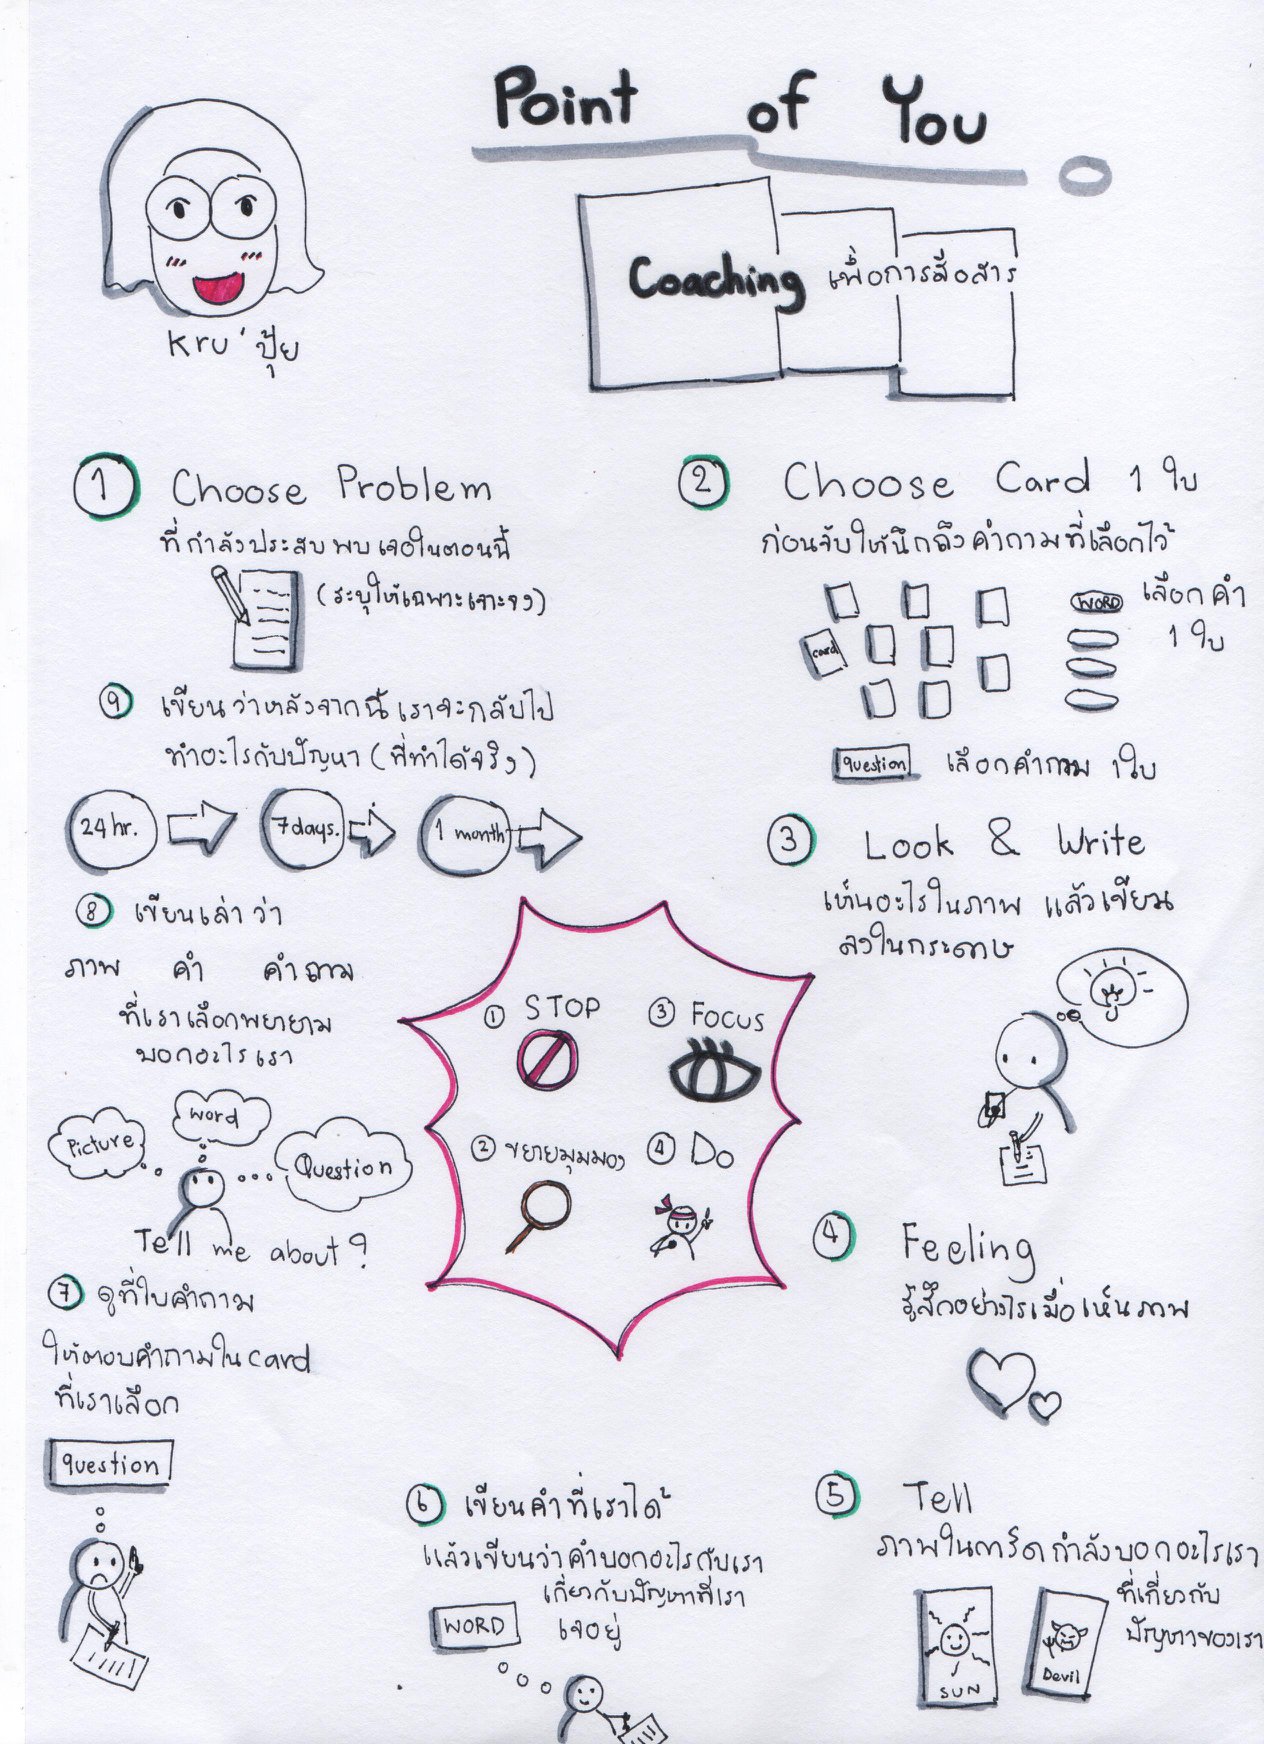 Point of You
Coaching เพื่อการสื่อสาร
Kru'ปุ้ย
1 Choose Problem
ที่กำลังประสบพบเจอในตอนนี้
(ระบุให้เฉพาะเจาะจง)
2 Choose Card 1 ใบ
ก่อนจับให้นึกถึงคำถามที่เลือกไว้
card
WORD
เลือกคำ
1 ใบ
question เลือกคำถาม 1ใบ
3 Look & Write
เห็นอะไรในภาพ แล้วเขียน
ลงในกระดาษ
4 Feeling
รู้สึกอย่างไรเมื่อเห็นภาพ
5 Tell
ภาพในการ์ดกำลังบอกอะไรเรา
ที่เกี่ยวกับ
ปัญหาของเรา
SUN
Devil
6 เขียนคำที่เราได้
แล้วเขียนว่าคำบอกอะไรกับเรา
เกี่ยวกับปัญหาที่เรา
เจออยู่
WORD
7 ดูที่ใบคำถาม
ให้ตอบคำถามใน card
ที่เราเลือก
question
8 เขียนเล่าว่า
ภาพ คำ คำถาม
ที่เราเลือกพยายาม
บอกอะไรเรา
Picture
word
Question
Tell me about?
9 เขียนว่าหลังจากนี้เราจะกลับไป
ทำอะไรกับปัญหา (ที่ทำได้จริง)
24 hr.
7 days.
1 month
1 STOP
2 ขยายมุมมอง
3 FOCUS
4 Do